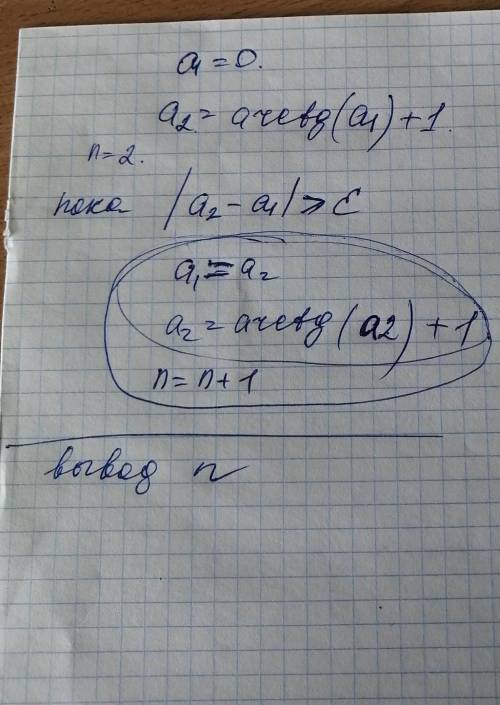 a1 = 0.
a2 = arctg(a1) + 1.
n = 2.
пока |a2 - a1| > ε
a1 = a2
a2 = arctg(a2) + 1
n = n + 1
вывод n